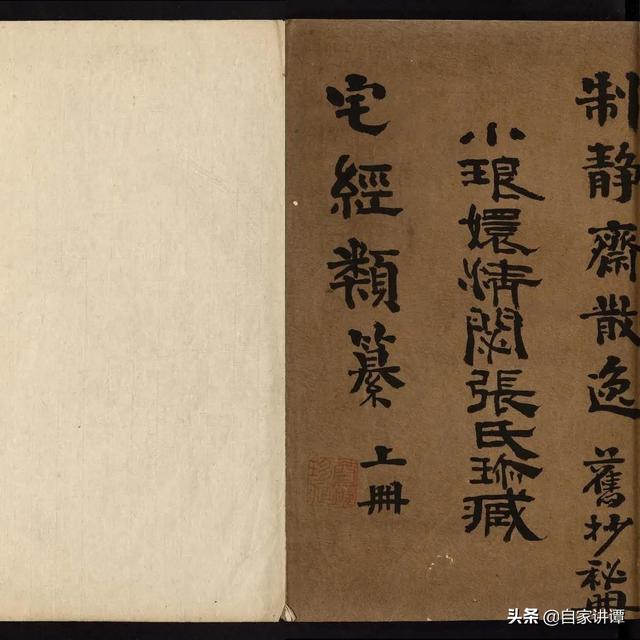 制静齋散逸 舊抄秘
小琅嬛清閟張氏珎臧
宅經類纂 上冊
头条 @白家讲谭